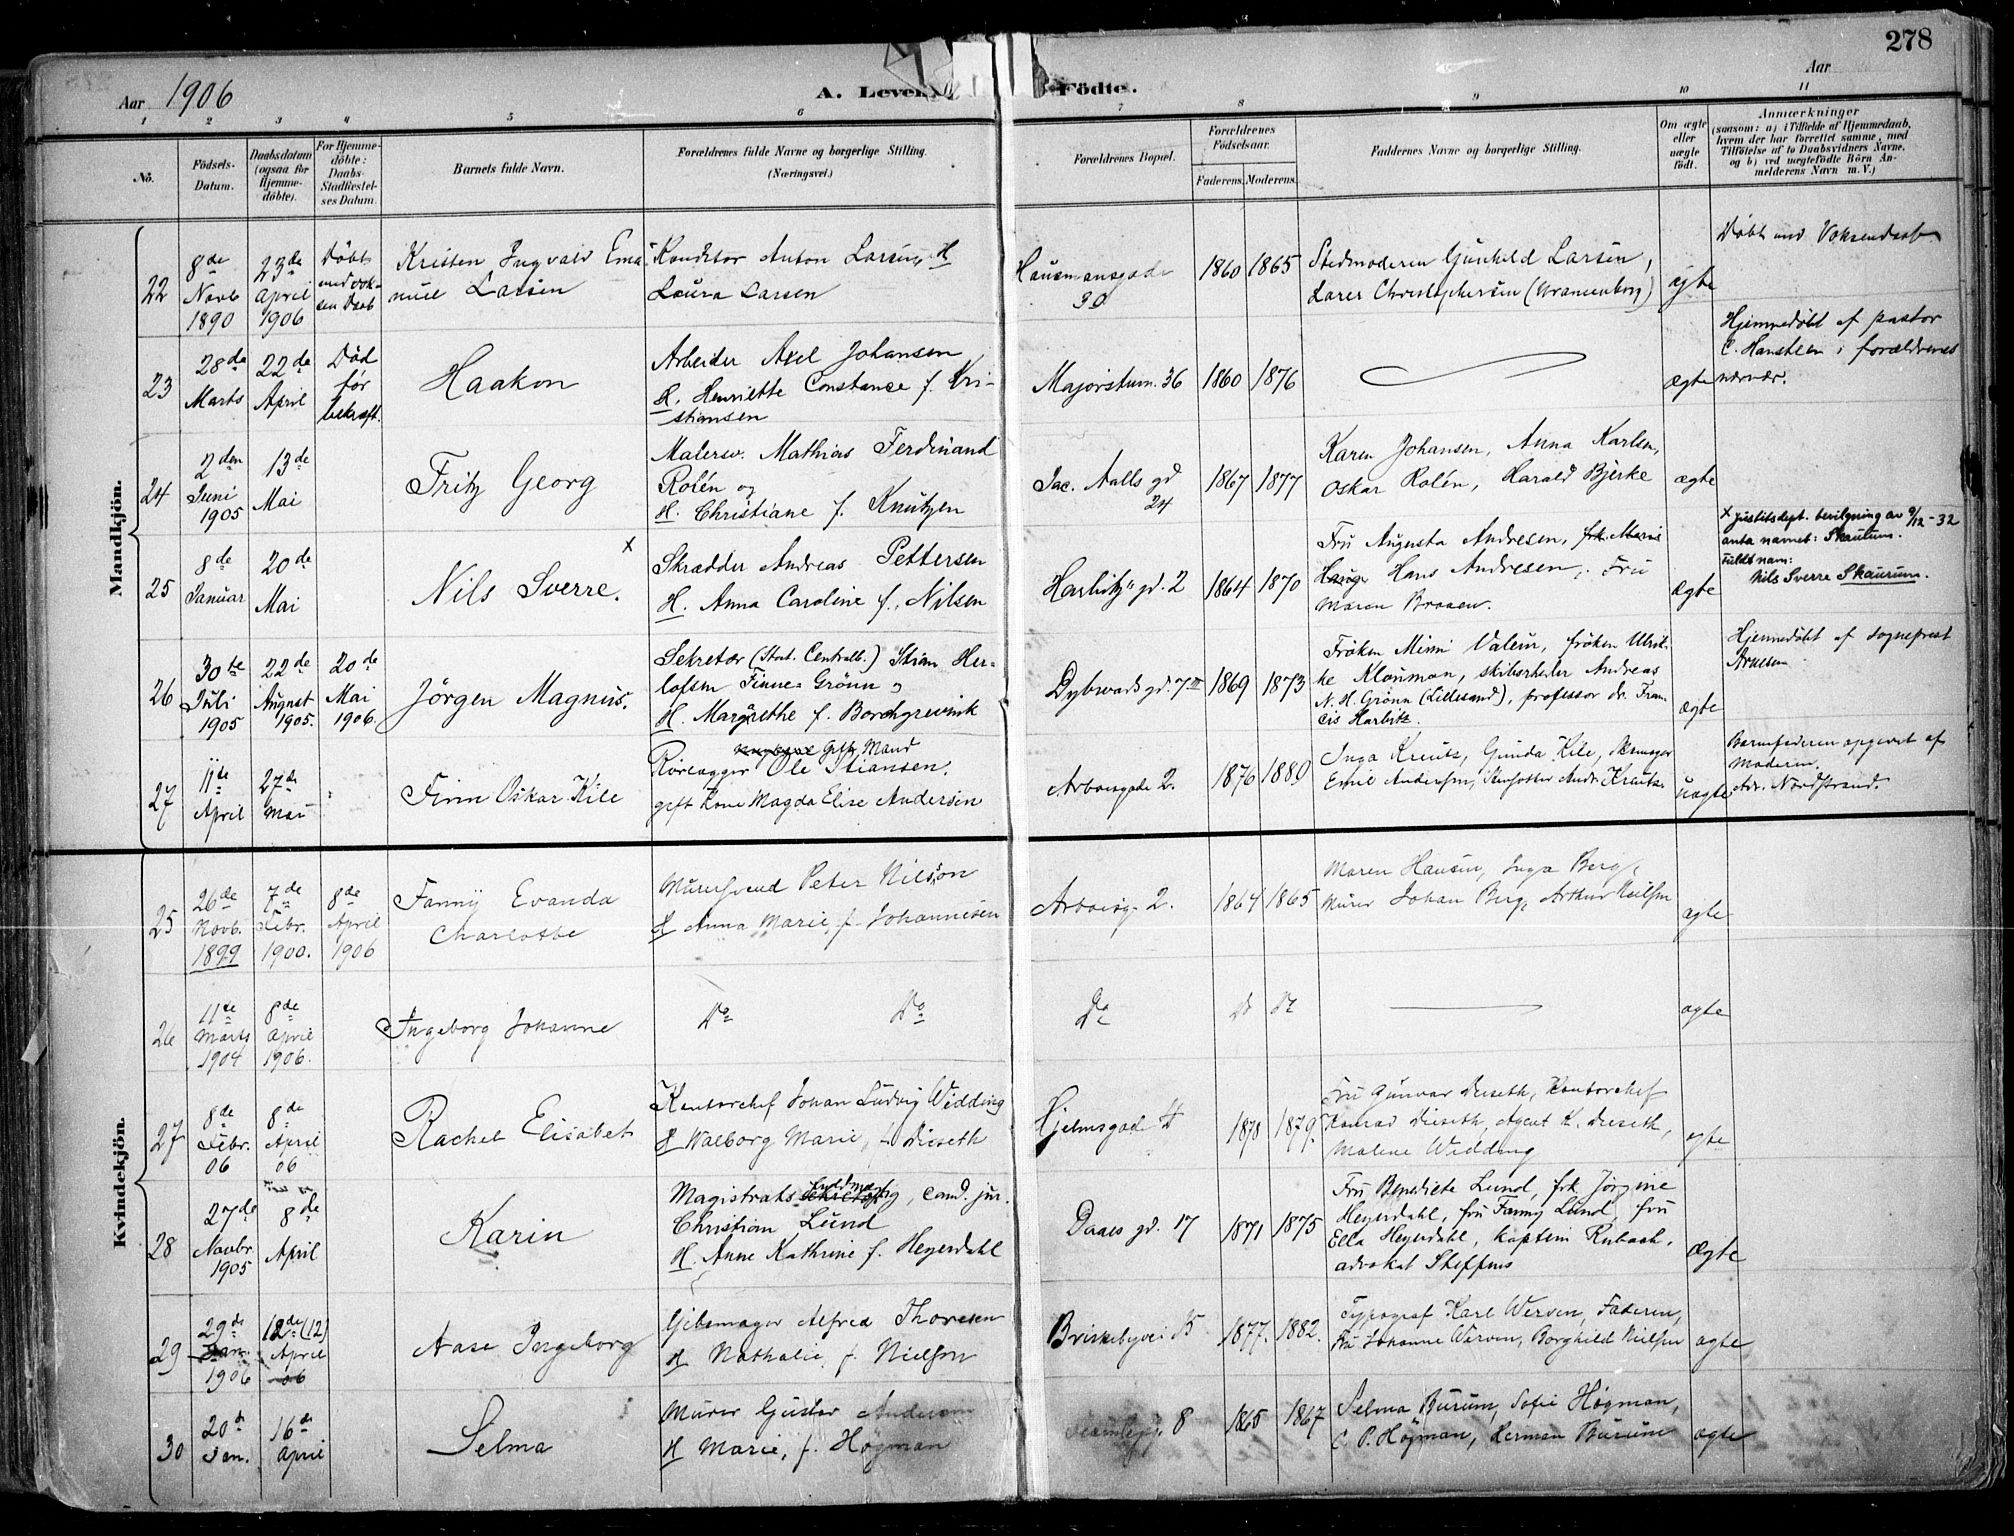 278
Aar 1906
A. Leven
Födte.
Aar
1 2 3 4 5 6 7 8 9 10 11
No.
Födsels-
Datum.
Daabsdatum
(ogsaa for
Hjemme-
döbte).
For Hjemme-
döbte:
Daabs-
Stadfæstel-
ses Datum.
Barnets fulde Navn.
Forældrenes fulde Navne og borgerlige Stilling.
(Næringsvei.)
Forældrenes Bopæl.
Forældrenes
Födselsaar.
Faderens. Moderens.
Faddernes Navne og borgerlige Stilling.
Om ægte
eller
uægte
födt.
Anmærkninger
(saasom: a) i Tilfælde af Hjemmedaab,
hvem der har forrettet samme, med
Tilföielse af to Daabsvidners Navne,
og b) ved uægtefödte Börn An-
melderens Navn m. V.)
Mandkjön.
22
8de
Novb
1890
23de
April
1906
Døbt
med vok-
sen Daab
Kristen Ingvald Ema-
nuel Larsen
Konditor Anton Larsen, H
Laura Larsen
Hausmansgade
30
1860 1865
Stedmoderen Gunhild Larsen,
Lares Christophersen (Uranienborg)
ægte
Døbt med Voksendaab
23
28de
Marts
22de
April
Død
før
bekræft.
Haakon
Arbeider Axel Johansen
H. Henriette Constance f. Kri-
stiansen
Majorstuen. 36
1860 1876
ægte
Hjemmedøbt af pastor
C. Hansteen i forældrenes
nærvær.
24
2den
Juni
1905
13de
Mai
Fritz Georg
Malersv. Mathias Ferdinand
Rolén og
H. Christiane f. Knutzen
Jac. Aalls gd
24
1867 1877
Karen Johansen, Anna Karlsen,
Oskar Rolén, Harald Bjerke
ægte
25
8de
Januar
20de
Mai
Nils Sverre. x
Skrædder Andreas Pettersen
H. Anna Caroline f. Nilsen
Harbitz' gd. 2
1864 1870
Fru Augusta Andresen, frk. Marie
Hauge Hans Andresen, Fru
Maren Braaen.
ægte
x Justitsdept. bevilgning av 9/12-32
anta navnet: Skaurum.
fulde navn:
Nils Sverre Skaurum.
26
30te
Juli
1905
22de
August
1905.
20de
Mai
1906.
Jörgen Magnus.
Sekretær (Stat. Centralb.) Stian Her-
lofsen Finne-Grönn
H. Margrethe f. Borchgrevink
Dybwads gd. 7 III
1869 1873
Fröken Mimi Valeur, fröken Ulrik-
ke Klouman, skibsreder Andreas
N. H. Grönn (Lillesand), professor dr. Fran-
cis Harbitz.
ægte
Hjemmedøbt af sogneprest
Arnesen
27
11te
April
27de
Mai
Finn Oskar Kile
Gift Mand
Rørlægger Ole Stiansen.
gift Kone Magda Elise Andersen
Arboesgade 2.
1876 1880
Inga Kreutz, Gunda Kile,
Emil Andersen,
uægte
Barnefaderen opgevet af
Moderen.
Adr. Nordstrand.
Kvindekjön.
25
26de
Novb.
1899
7de
Febr.
1900.
8de
April
1906
Fanny Evanda
Charlotte
Mursvend Peter Nilsson
H Anna Marie, f. Johannesen
Arboesg. 2.
1864 1865
Maren Hansen, Inga Berg,
Murer Johan Berg, Arthur Nielsen
ægte
26
11te
Marts
1904
8de
April
1906.
Ingeborg Johanne
Do Do
Do
Do Do
ægte
27
8de
Febr.
06
8de
April
06
Rachel Elisabet
Kontorchef Johan Ludvig Widding
H Walborg Marie, f. Dieseth
Hjelmsgade
1878 1879.
Fru Gunvar Dieseth, Kontorchef
Konrad Dieseth, Agent K. Dieseth,
Malene Widding
ægte
28
27de
Novbr.
1905
8de
April
Karin
Magistrats fuldmægtig, cand. jur.
Christian Lund
H. Anne Kathrine f. Heyerdahl
Daaes gd. 17
1871 1875
Fru Benedicte Lund, frk. Jörgine
Heyerdahl, fru Fanny Lund, fru
Ella Heyerdahl, kaptein Rubach,
advokat Steffens
ægte
29
29de
Jan.
1906
12de (12)
April
06
Aase Ingeborg
Gibsmager Alfred Thoresen
H Nathalie, f. Nielsen
Briskebyvei 15
1877. 1882.
Typograf Karl Wersen, Faderen,
Fru Johanne Wersen, Borghild Nielsen
ægte
30
20de
Jan.
16de
April
Selma
Murer Gustav Andersen
H Marie, f. Høgman
8
1865 1867
Selma Burum, Sofie Høgman,
C. P. Høgman, Herman Burum
ægte